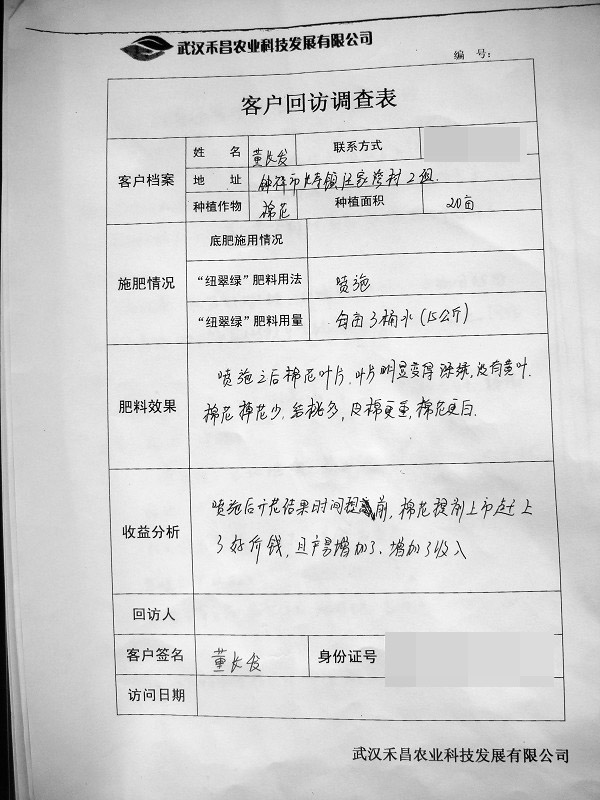 武汉禾昌农业科技发展有限公司
编 号:
客户回访调查表
客户档案
姓 名 董长发 联系方式
地 址 钟祥市 镇汪家 村2组
种植作物 棉花 种植面积 20亩
施肥情况
底肥施用情况
“纽翠绿”肥料用法 喷施
“纽翠绿”肥料用量 每亩3桶水(15公斤)
肥料效果
喷施之后棉花叶片.叶片明显变得深绿,没有黄叶.
棉花掉花少.结桃多,皮棉更重,棉花更白.
收益分析
喷施后开花结果时间提前,棉花提前上市赶上
了好价钱,且产量增加了、增加了收入
回访人
客户签名 董长发 身份证号
访问日期
武汉禾昌农业科技发展有限公司